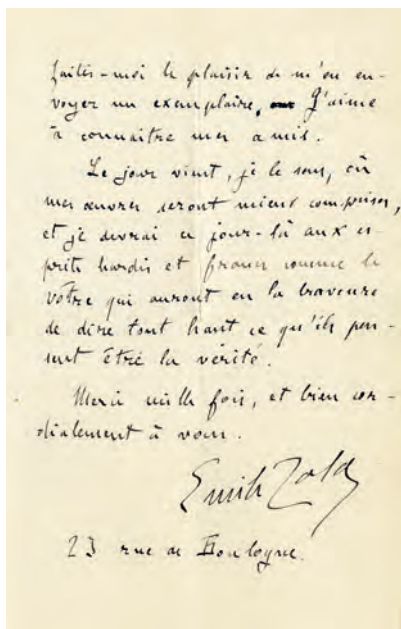 faites-moi le plaisir de m'en en-
voyer un exemplaire. J'aime
à connaître mes amis.
Le jour vient, je le sens, où
mes œuvres seront mieux comprises,
et je devrai ce jour-là aux es-
prits hardis et francs comme le
vôtre qui auront eu la bravoure
de dire tout haut ce qu'ils pen-
sent être la vérité.
Merci mille fois, et bien cor-
dialement à vous.
Emile Zola
23 rue de Boulogne.